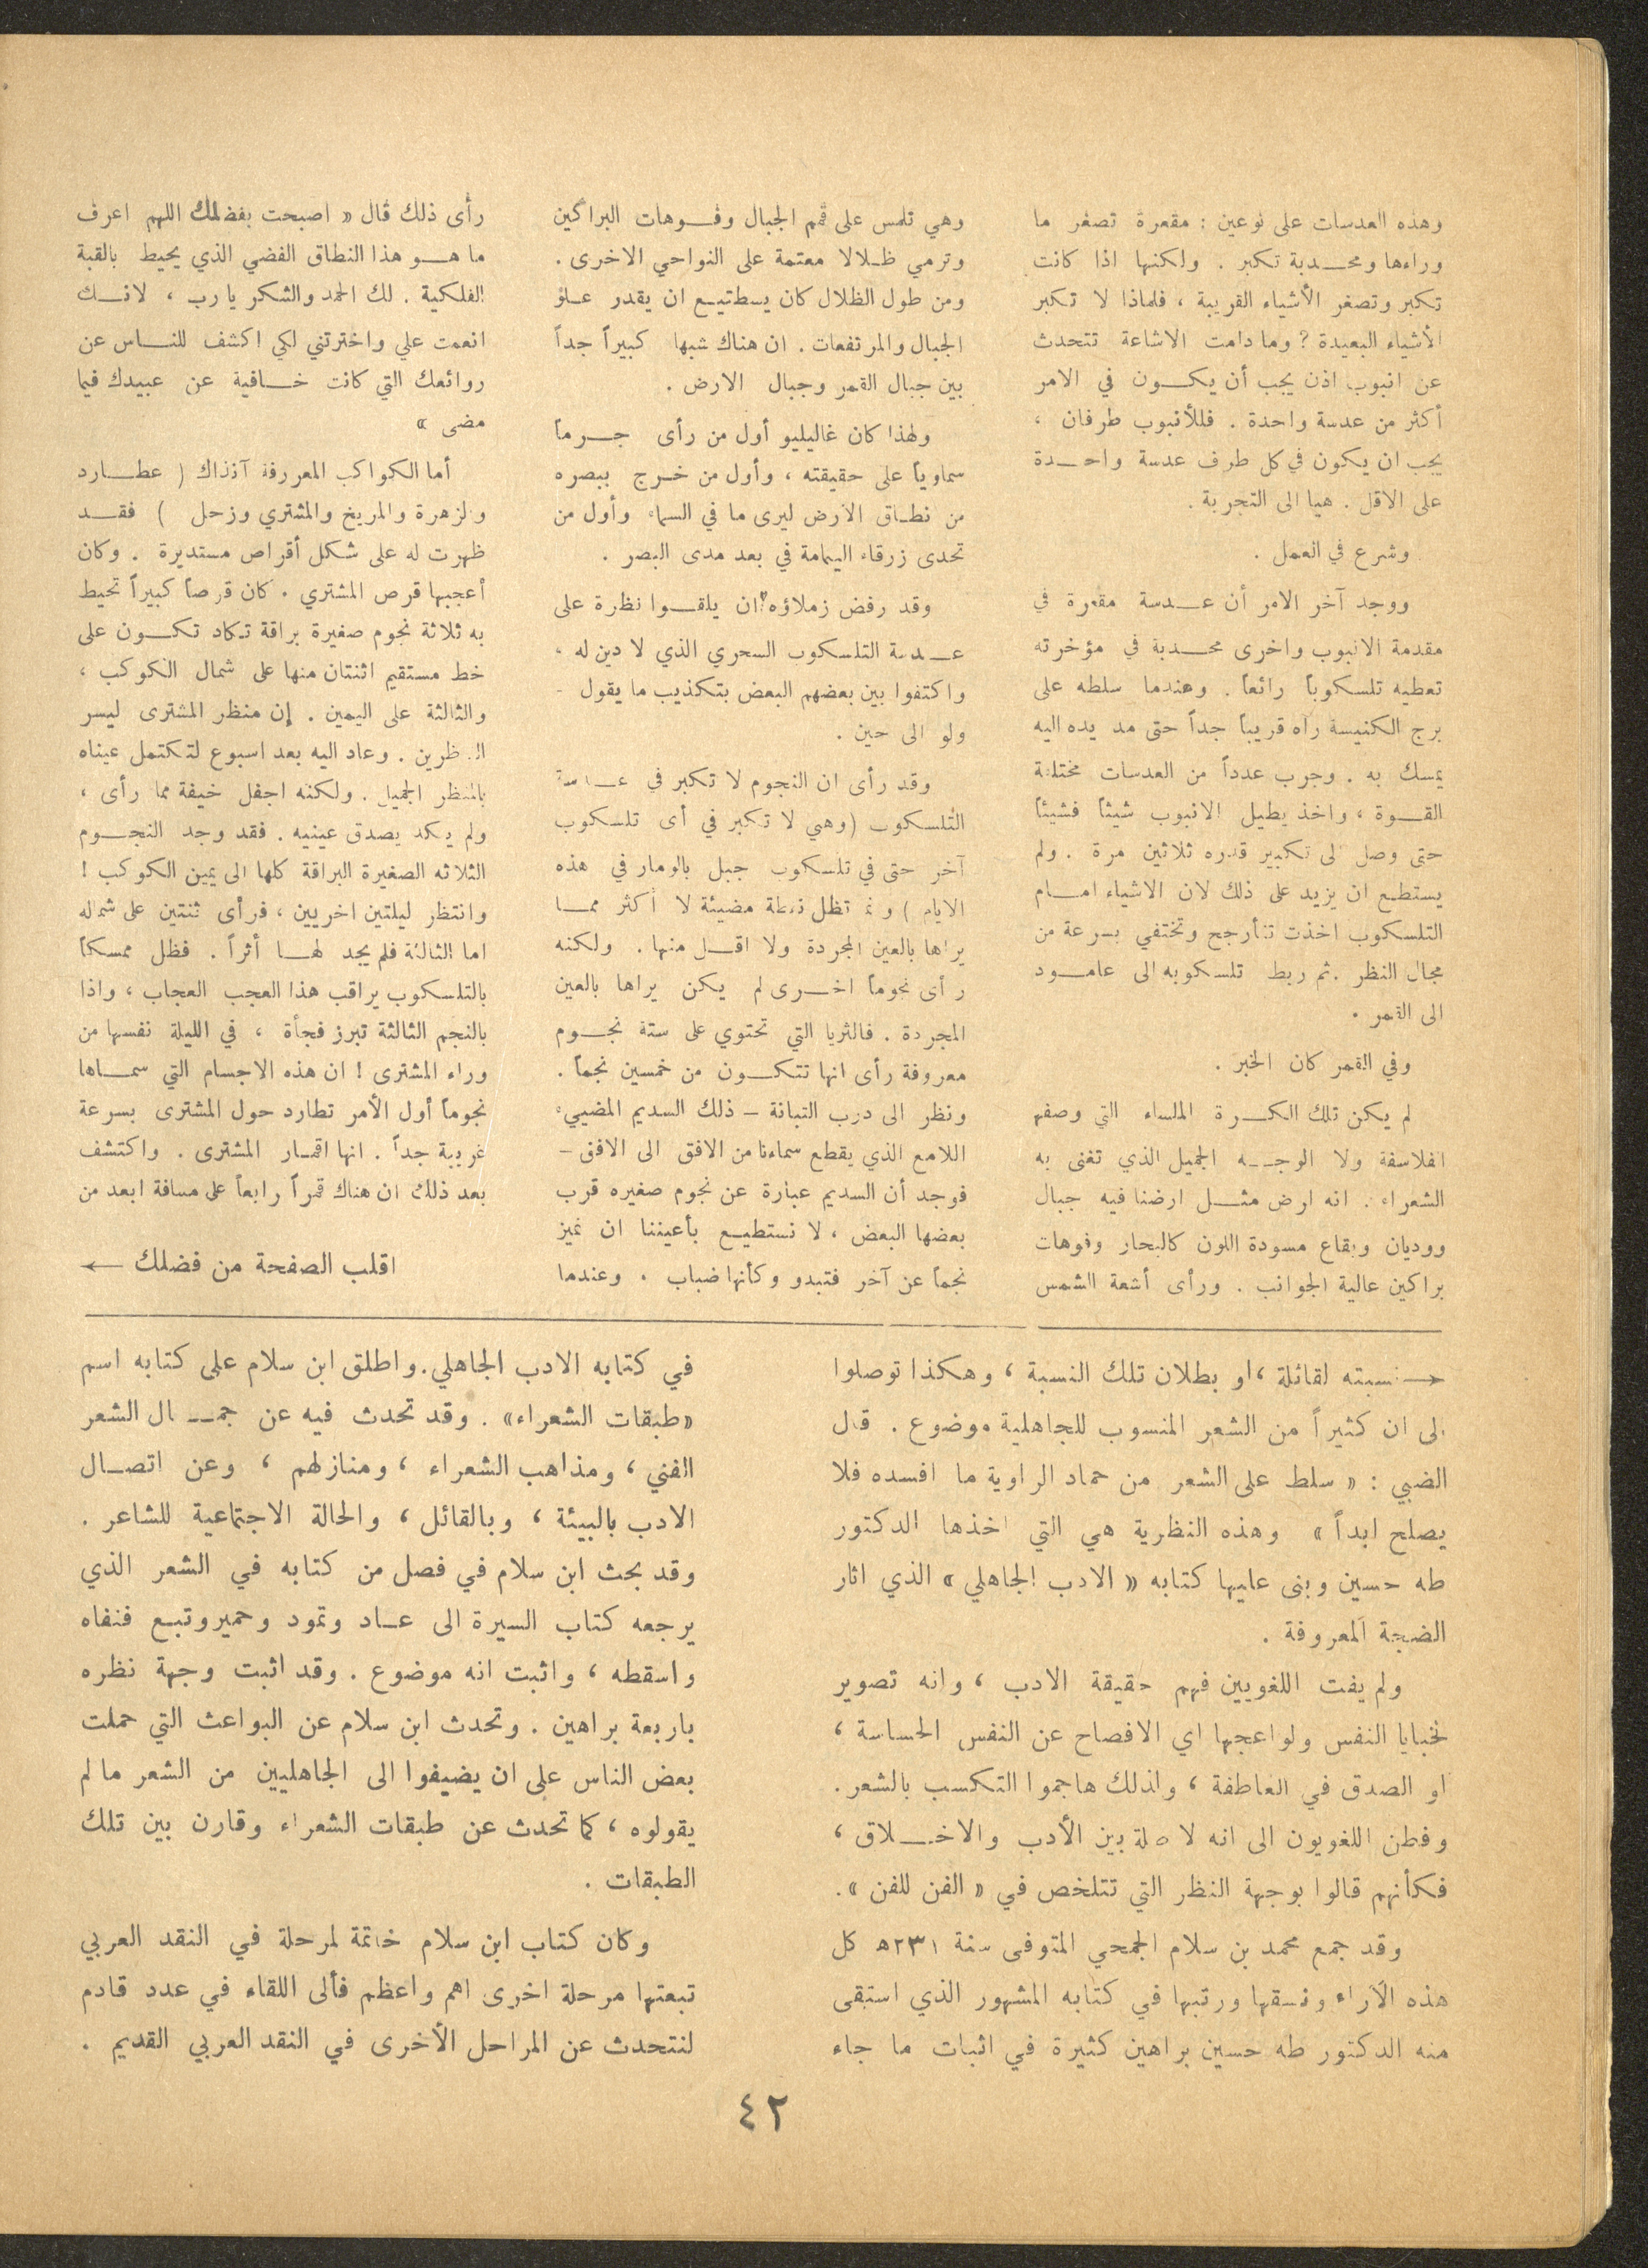 وهذه العدسات على نوعين : مقعرة تصغر ما
وراءها ومحدبة تكبر . ولكنها اذا كانت
تكبر وتصغر الأشياء القريبة ، فلماذا لا تكبر
الأشياء البعيدة ? وما دامت الاشاعة تتحدث
عن انبوب اذن يجب أن يكون في الامر
أكثر من عدسة واحدة . فللأنبوب طرفان ،
يجب ان يكون في كل طرف عدسة واحدة
على الاقل . هيا الى التجربة .
وشرع في العمل .
ووجد آخر الامر أن عدسة مقعرة في
مقدمة الانبوب واخرى محدبة في مؤخرته
تعطيه تلسكوباً رائعاً . وعندما سلطه على
برج الكنيسة رآه قريباً جداً حتى مد يده اليه
يمسك به . وجرب عدداً من العدسات مختلفة
القوة ، واخذ يطيل الانبوب شيئاً فشيئاً
حتى وصل الى تكبير قدره ثلاثين مرة . ولم
يستطع ان يزيد على ذلك لان الاشياء امام
التلسكوب اخذت تتأرجح وتختفي بسرعة من
مجال النظر . ثم ربط تلسكوبه الى عامود
الى القمر .
وفي القمر كان الخبر .
لم يكن تلك الكرة الملساء التي وصفها
الفلاسفة ولا الوجه الجميل الذي تغنى به
الشعراء . انه ارض مثل ارضنا فيه جبال
ووديان وبقاع مسودة اللون كالبحار وفوهات
براكين عالية الجوانب . ورأى أشعة الشمس
وهي تلمس على قمم الجبال وفوهات البراكين
وترمي ظلالا معتمة على النواحي الاخرى .
ومن طول الظلال كان يسطتيع ان يقدر علو
الجبال والمرتفعات . ان هناك شبها كبيراً جداً
بين جبال القمر وجبال الارض .
ولهذا كان غاليليو أول من رأى جرماً
سماوياً على حقيقته ، وأول من خرج ببصره
من نطاق الارض ليرى ما في السماء وأول من
تحدى زرقاء اليمامة في بعد مدى البصر .
وقد رفض زملاؤه ان يلقوا نظرة على
عدسة التلسكوب السحري الذي لا دين له ،
واكتفوا بين بعضهم البعض بتكذيب ما يقول -
ولو الى حين .
وقد رأى ان النجوم لا تكبر في عدسة
التلسكوب (وهي لا تكبر في أى تلسكوب
آخر حتى في تلسكوب جبل بالومار في هذه
الايام ) تظل نقطة مضيئة لا أكثر مما
يراها بالعين المجردة ولا اقل منها . ولكنه
رأى نجوماً اخرى لم يكن يراها بالعين
المجردة . فالثريا التي تحتوي على ستة نجوم
معروفة رأى انها تتكون من خمسين نجماً .
ونظر الى درب التبانة - ذلك السديم المضيىء
اللامع الذي يقطع سماءنا من الافق الى الافق -
فوجد أن السديم عبارة عن نجوم صغيره قرب
بعضها البعض ، لا نستطيع بأعيننا ان نميز
نجماً عن آخر فتبدو وكأنها ضباب . وعندما
رأى ذلك قال « اصبحت بفضلك اللهم اعرف
ما هو هذا النطاق الفضي الذي يحيط بالقبة
الفلكية . لك الحمد والشكر يا رب ، لانك
انعمت علي واخترتني لكي اكشف للناس عن
روائعك التي كانت خافية عن عبيدك فيما
مضى »
أما الكواكب المعروفة آنذاك ( عطارد
والزهرة والمريخ والمشتري وزحل ) فقد
ظهرت له على شكل أقراص مستديرة . وكان
أعجبها قرص المشتري . كان قرصاً كبيراً تحيط
به ثلاثة نجوم صغيرة براقة تكاد تكون على
خط مستقيم اثنتان منها على شمال الكوكب ،
والثالثة على اليمين . إن منظر المشترى ليسر
الناظرين . وعاد اليه بعد اسبوع لتكتمل عيناه
بالمنظر الجميل . ولكنه اجفل خيفة مما رأى ،
ولم يكد يصدق عينيه . فقد وجد النجوم
الثلاثه الصغيرة البراقة كلها الى يمين الكوكب !
وانتظر ليلتين اخريين ، فرأى ثنتين على شماله
اما الثالثة فلم يجد لها أثراً . فظل ممسكاً
بالتلسكوب يراقب هذا العجب العجاب ، واذا
بالنجم الثالثة تبرز فجأة ، في الليلة نفسها من
وراء المشترى ! ان هذه الاجسام التي سماها
نجوماً أول الأمر تطارد حول المشترى بسرعة
غريبة جداً . انها اقمار المشترى . واكتشف
بعد ذلك ان هناك قمراً رابعاً على مسافة ابعد من
اقلب الصفحة من فضلك ←
→ نسبته لقائلة ، او بطلان تلك النسبة ، وهكذا توصلوا
الى ان كثيراً من الشعر المنسوب للجاهلية موضوع . قال
الضبي : « سلط على الشعر من حماد الراوية ما افسده فلا
يصلح ابداً » وهذه النظرية هي التي اخذها الدكتور
طه حسين وبنى عليها كتابه « الادب الجاهلي » الذي اثار
الضجة المعروفة .
ولم يفت اللغويين فهم حقيقة الادب ، وانه تصوير
لخبايا النفس ولواعجها اي الافصاح عن النفس الحساسة ،
او الصدق في العاطفة ، ولذلك هاجموا التكسب بالشعر .
وفطن اللغويون الى انه لا صلة بين الأدب والاخلاق ،
فكأنهم قالوا بوجهة النظر التي تتلخص في « الفن للفن » .
وقد جمع محمد بن سلام الجمحي المتوفى سنة ٢٣١ه كل
هذه الآراء ونسقها ورتبها في كتابه المشهور الذي استبقى
منه الدكتور طه حسين براهين كثيرة في اثبات ما جاء
في كتابه الادب الجاهلي . واطلق ابن سلام على كتابه اسم
«طبقات الشعراء» . وقد تحدث فيه عن جمال الشعر
الفني ، ومذاهب الشعراء ، ومنازلهم ، وعن اتصال
الادب بالبيئة ، وبالقائل ، والحالة الاجتماعية للشاعر .
وقد بحث ابن سلام في فصل من كتابه في الشعر الذي
يرجعه كتاب السيرة الى عاد وثمود وحمير وتبع فنفاه
واسقطه ، واثبت انه موضوع . وقد اثبت وجهة نظره
باربعة براهين . وتحدث ابن سلام عن البواعث التي حملت
بعض الناس على ان يضيفوا الى الجاهليين من الشعر ما لم
يقولوه ، كما تحدث عن طبقات الشعراء وقارن بين تلك
الطبقات .
وكان كتاب ابن سلام خاتمة لمرحلة في النقد العربي
تبعتها مرحلة اخرى اهم واعظم فألى اللقاء في عدد قادم
لنتحدث عن المراحل الأخرى في النقد العربي القديم .
٤٢